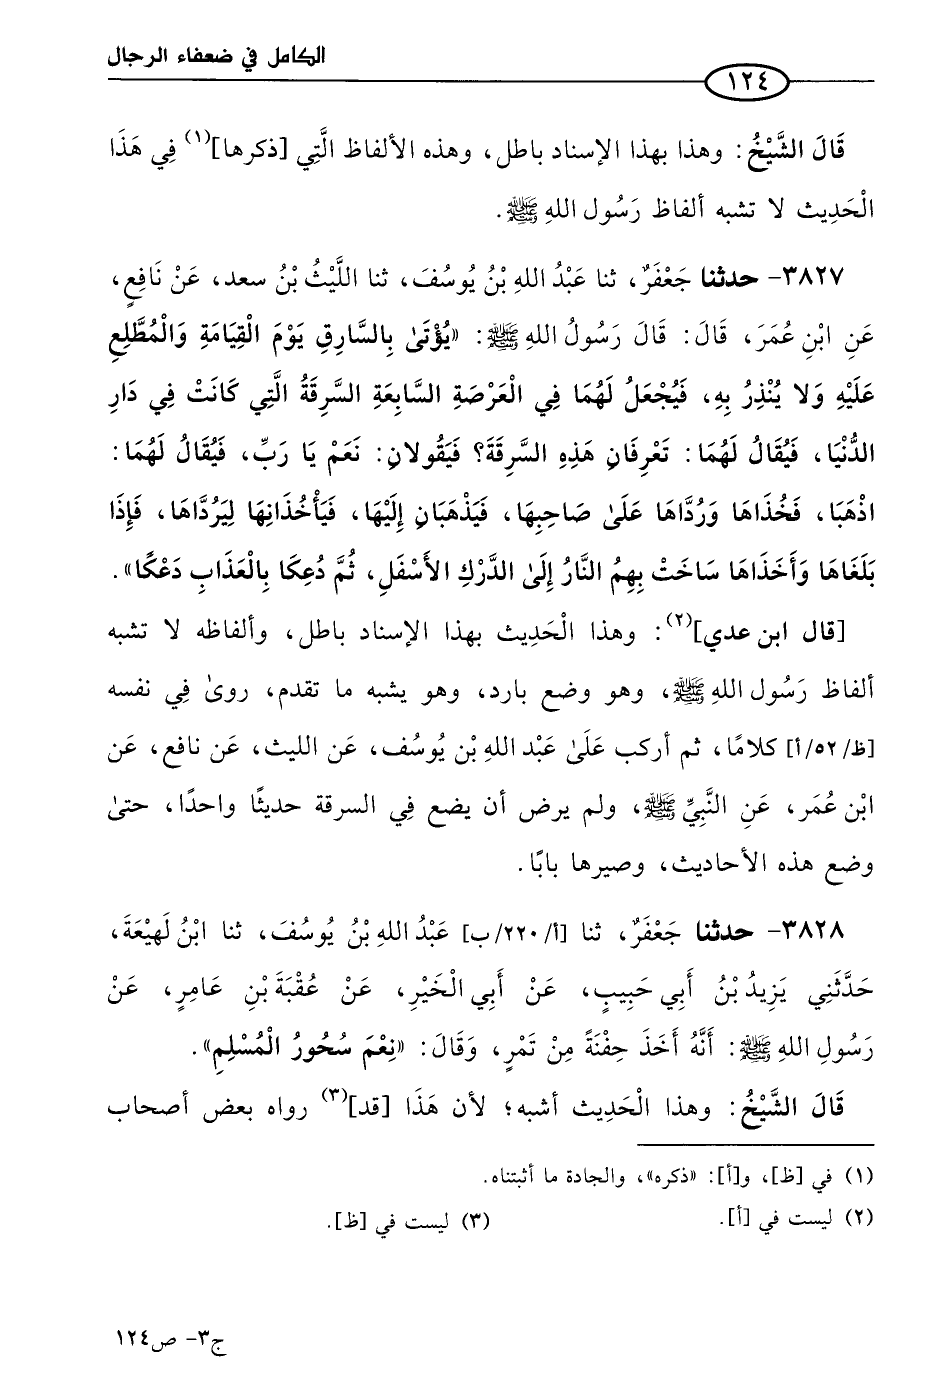 الكامل في ضعفاء الرجال
١٢٤
قَالَ الشَّيْخُ: وهذا بهذا الإسناد باطل، وهذه الألفاظ الَّتِي [ذكرها](١) فِي هَذَا
الْحَدِيث لا تشبه ألفاظ رَسُول اللهِ ﷺ.
٣٨٢٧- حدثنا جَعْفَرٌ، ثنا عَبْدُ اللهِ بْنُ يُوسُفَ، ثنا اللَّيْثُ بْنُ سعد، عَنْ نَافِعٍ،
عَنِ ابْنِ عُمَرَ، قَالَ: قَالَ رَسُولُ اللهِ ﷺ: «يُؤْتَىٰ بِالسَّارِقِ يَوْمَ الْقِيَامَةِ وَالْمُطَّلِعِ
عَلَيْهِ وَلا يُنْذِرُ بِهِ، فَيُجْعَلُ لَهُمَا فِي الْعَرْصَةِ السَّابِعَةِ السَّرِقَةُ الَّتِي كَانَتْ فِي دَارِ
الدُّنْيَا، فَيُقَالُ لَهُمَا: تَعْرِفَانِ هَذِهِ السَّرِقَةَ؟ فَيَقُولانِ: نَعَمْ يَا رَبِّ، فَيُقَالُ لَهُمَا:
اذْهَبَا، فَخُذَاهَا وَرُدَّاهَا عَلَىٰ صَاحِبِهَا، فَيَذْهَبَانِ إِلَيْهَا، فَيَأْخُذَانِهَا لِيَرُدَّاهَا، فَإِذَا
بَلَغَاهَا وَأَخَذَاهَا سَاخَتْ بِهِمُ النَّارُ إِلَىٰ الدَّرْكِ الأَسْفَلِ، ثُمَّ دُعِكَا بِالْعَذَابِ دَعْكًا».
[قال ابن عدي](٢): وهذا الْحَدِيث بهذا الإسناد باطل، وألفاظه لا تشبه
ألفاظ رَسُول اللهِ ﷺ، وهو وضع بارد، وهو يشبه ما تقدم، روىٰ فِي نفسه
[ظ/٥٢/أ] كلامًا، ثم أركب عَلَىٰ عَبْد اللهِ بْن يُوسُف، عَن الليث، عَن نافع، عَن
ابْن عُمَر، عَنِ النَّبِيِّ ﷺ، ولم يرض أن يضع فِي السرقة حديثًا واحدًا، حتىٰ
وضع هذه الأحاديث، وصيرها بابًا.
٣٨٢٨- حدثنا جَعْفَرٌ، ثنا [أ/٢٢٠/ب] عَبْدُ اللهِ بْنُ يُوسُفَ، ثنا ابْنُ لَهِيْعَةَ،
حَدَّثَنِي يَزِيدُ بْنُ أَبِي حَبِيبٍ، عَنْ أَبِي الْخَيْرِ، عَنْ عُقْبَةَ بْنِ عَامِرٍ، عَنْ
رَسُولِ اللهِ ﷺ: أَنَّهُ أَخَذَ حِفْنَةً مِنْ تَمْرٍ، وَقَالَ: «نِعْمَ سُحُورُ الْمُسْلِمِ».
قَالَ الشَّيْخُ: وهذا الْحَدِيث أشبه؛ لأن هَذَا [قد](٣) رواه بعض أصحاب
(١) في [ظ]، و[أ]: «ذكره»، والجادة ما أثبتناه.
(٢) ليست في [أ]. (٣) ليست في [ظ].
ج٣- ص١٢٤